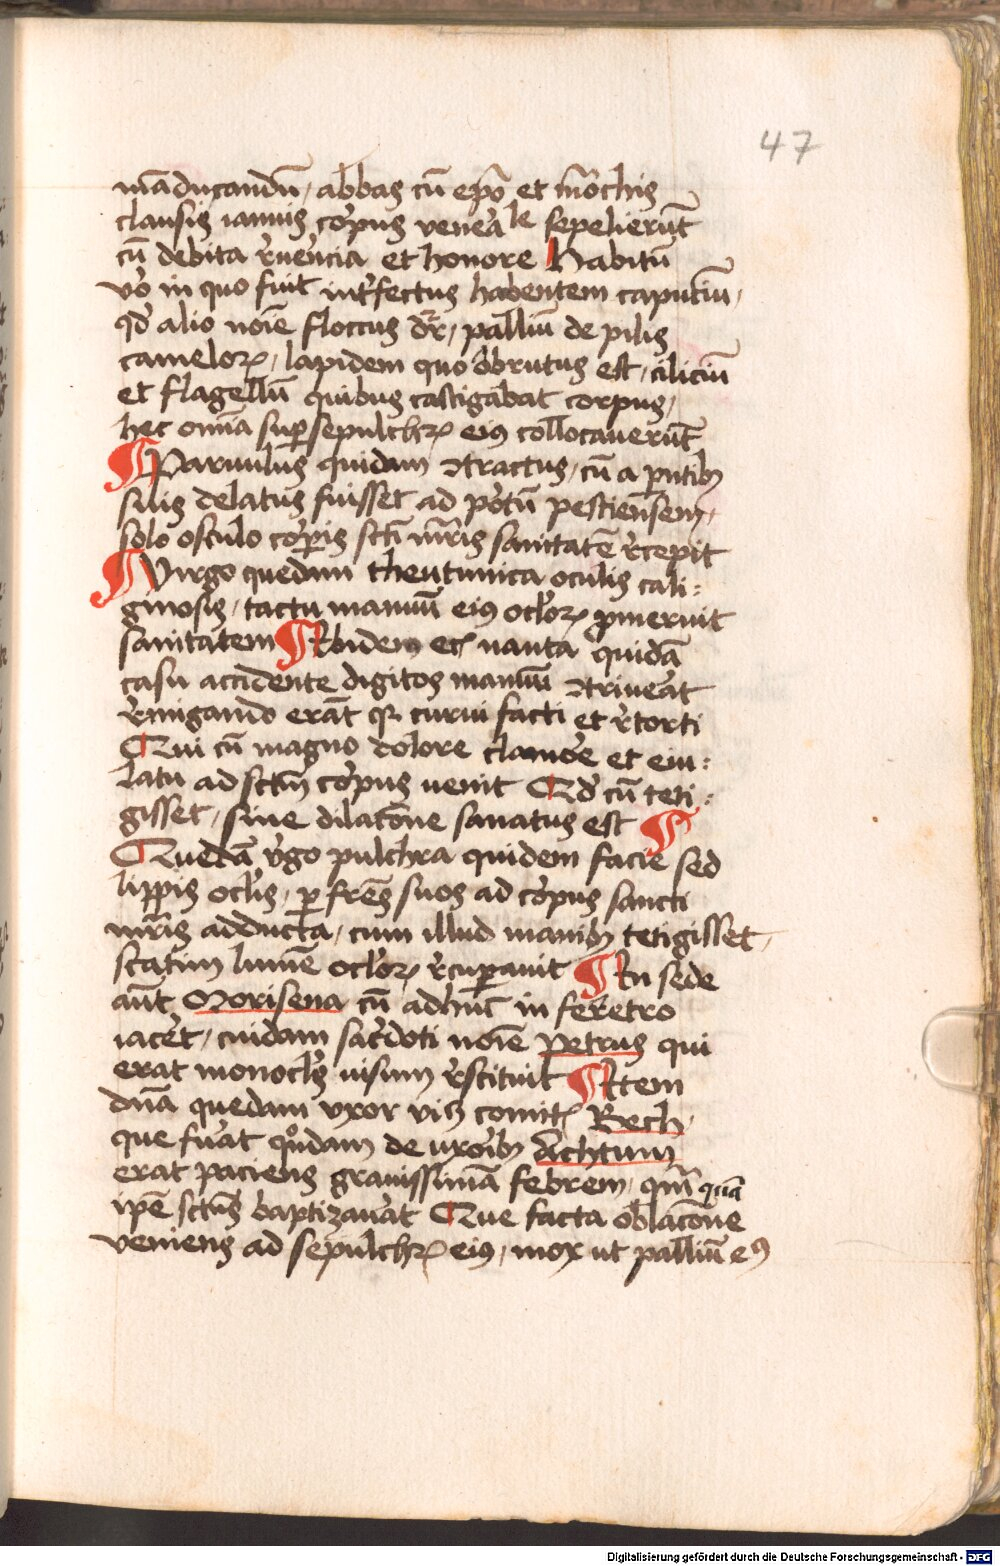 47
mãducandũ, abbas cũ ep̃o et mõchis
clausis ianuis corpus venera le sepelierũt
cũ debita r̾uerẽcia et honore Habitũ
vo in quo fuit int̾fectus habentem caputiũ,
qd̾ alio noĩe floccus dr̃, palliũ de pilis
cameloꝝ, lapidem quo obrutus est, ciliciũ
et flagellũ quibus castigabat corpus,
hec om̃ia super sepulchꝝ eiꝰ collocauerũt
¶ Paruulus quidam ꝯtractus, cũ a pñtibꝫ
suis delatus fuisset ad portũ pestiensem,
solo osculo corp̾is sc̃i mr̃is sanitatẽ r̾cepit
¶ Virgo quedam theutunica oculis cali:
ginosis, tactu manuũ eiꝰ oclõꝝ ꝓmeruit
sanitatem ¶ Ibidem ec̾ nauta quidã
casu accidente digitos manuũ ꝯtriuerat
r̾migando erãt qꝫ curui facti et r̾torti
Qui cũ magno dolore clamore et eiu:
latu ad sctm̃ corpus uenit Qd̾ cũ teti:
gisset, sine dilatõne sanatus est ¶
Quedã v̾go pulchra quidem facie sed
lippis ocl̃is, ꝑ fr̃es suos ad corpus sancti
mr̃is adducta, cum illud manibꝫ tetigisset,
statim lumẽ oclõꝝ r̾cuꝑauit ¶ In sede
aũt Morisena cũ adhuc in feretro
iacer̾t, cuidam sac̾doti noĩe Petrus qui
erat monocl̃s uisum r̾stituit ¶ Item
dñа quedam vxor vicꝫ comit̾ Bech,
que fuãt qͦndam de uxoribꝫ Achtum
erat paciens grauissimã febrem, qm̃ quã
ip̃e sctũs baptizauat Que facta oblacõne
veniens ad sepulchꝝ eiꝰ, mox ut palliũ eꝰ
Digitalisierung gefördert durch die Deutsche Forschungsgemeinschaft - DFG